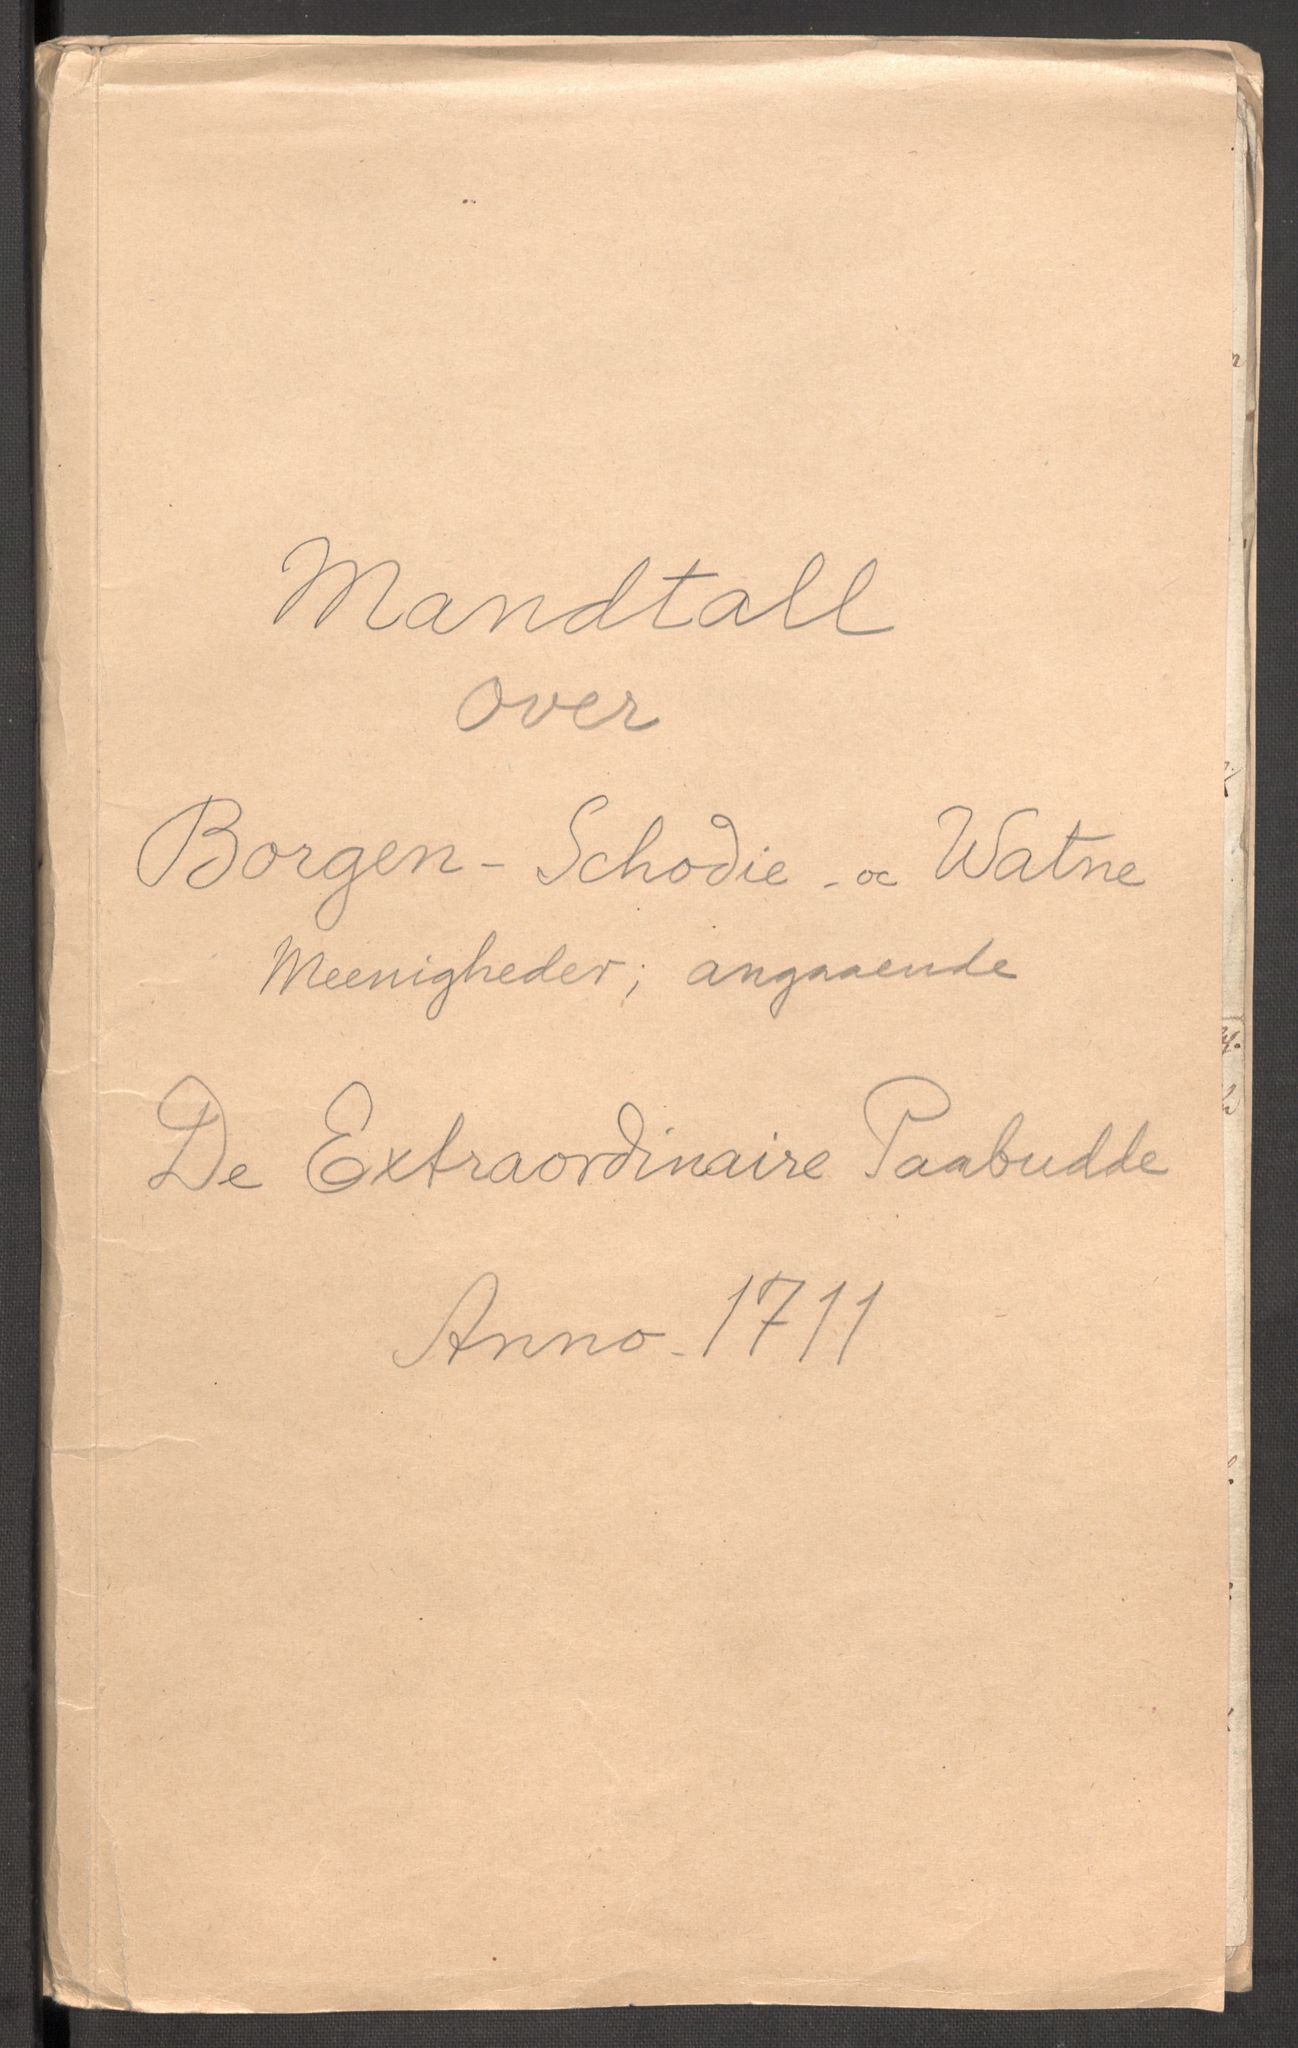 Mandtall
over
Borgen - Schodie - oc Watne
Meenigheder; angaaende
De Extraordinaire Paabudde
Anno - 1711